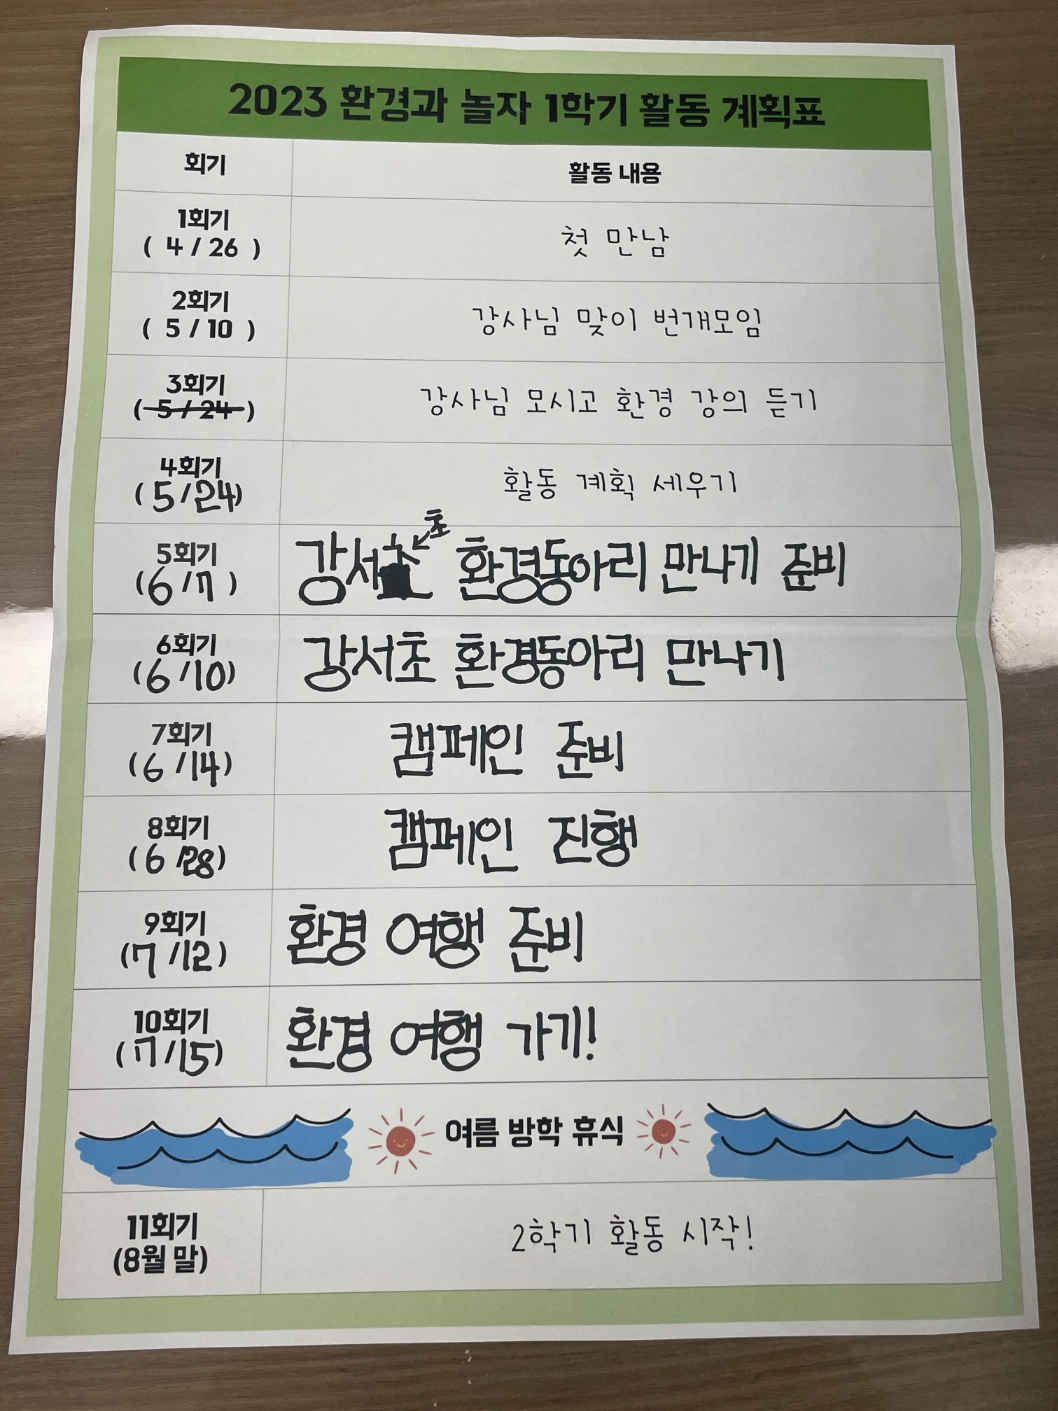 2023 환경과 놀자 1학기 활동 계획표
회기 활동 내용
1회기
( 4 / 26 ) 첫 만남
2회기
( 5 / 10 ) 강사님 맞이 번개모임
3회기
( 5 / 24 ) 강사님 모시고 환경 강의 듣기
4회기
( 5/24) 활동 계획 세우기
초
5회기
(6/7 ) 강서초 환경동아리 만나기 준비
6회기
(6/10) 강서초 환경동아리 만나기
7회기
(6/14) 캠페인 준비
8회기
(6/28) 캠페인 진행
9회기
(7/12) 환경 여행 준비
10회기
(7/15) 환경 여행 가기!
여름 방학 휴식
11회기
(8월 말) 2학기 활동 시작!